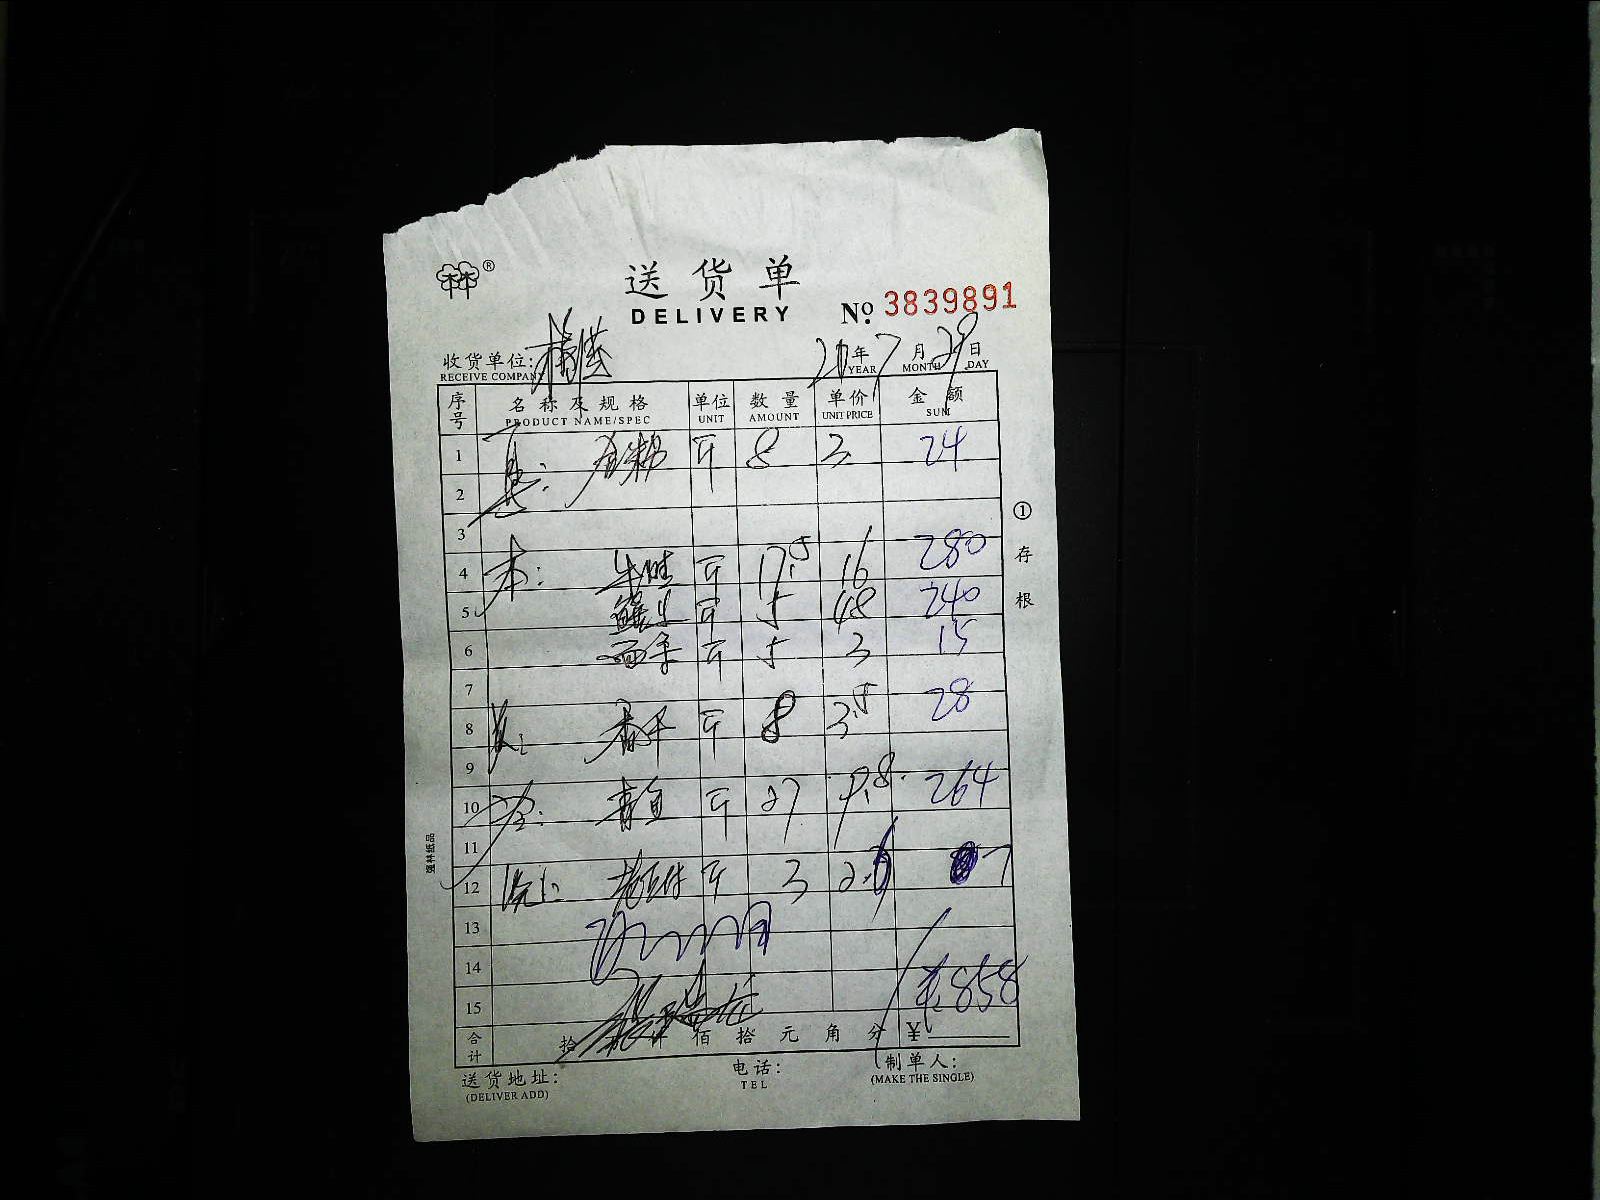 ®
送货单
DELIVERY
No. 3839891
收货单位:
RECEIVE COMPANY
年 7 月 29 日
YEAR MONTH DAY
序号 名称及规格 单位 数量 单价 金额
PRODUCT NAME/SPEC UNIT AMOUNT UNIT PRICE SUM
1 斤 8 3 24
2
3
4 本: 牛 斤 17.5 16 280
5 斤 5 48 240
6 西芹 斤 5 3 15
7
8 香干 斤 8 3.5 28
9
10 青鱼 斤 27 9.8 264
11
12 斤 3 7
13
14
15 ¥858
合计 拾 佰 拾 元 角 分 ¥
送货地址:
(DELIVER ADD)
电话:
TEL
制单人:
(MAKE THE SINGLE)
①存根
强林纸品